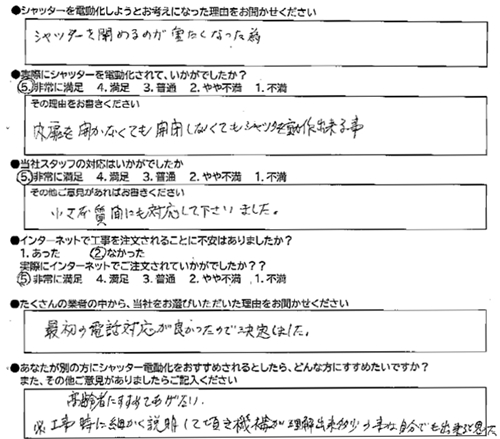 ●シャッターを電動化しようとお考えになった理由をお聞かせください
シャッターを開めるのが重たくなった為
●実際にシャッターを電動化されて、いかがでしたか?
⑤.非常に満足 4.満足 3.普通 2.やや不満 1.不満
その理由をお書きください
を開かなくても開閉しなくてもシャッターを動作出来る事
●当社スタッフの対応はいかがでしたか
⑤.非常に満足 4.満足 3.普通 2.やや不満 1.不満
その他ご意見があればお書きください
小さな質問にも対応して下さいました。
●インターネットで工事を注文されることに不安はありましたか?
1.あった ②なかった
実際にインターネットでご注文されていかがでしたか??
⑤非常に満足 4.満足 3.普通 2.やや不満 1.不満
●たくさんの業者の中から、当社をお選びいただいた理由をお聞かせください
最初の電話対応が良かったので決定しました。
●あなたが別の方にシャッター電動化をおすすめされるとしたら、どんな方にすすめたいですか?
また、その他ご意見がありましたらご記入ください
高齢者にすすめてあげたい。
工事時に細かく説明して頂き機構が理解出来少の事な自分でも出来ると思た